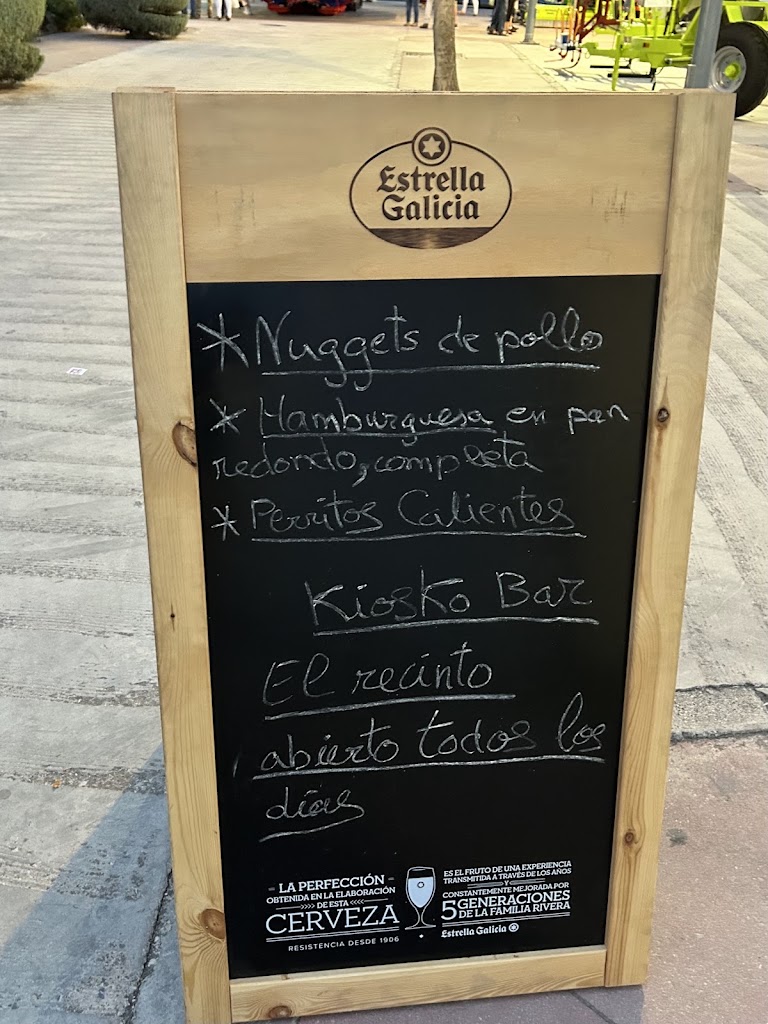 Estrella
Galicia
* Nuggets de pollo
* Hamburguesa en pan
redondo, completa
* Perritos Calientes
Kiosko Bar
El recinto
abierto todos los
días
LA PERFECCIÓN
OBTENIDA EN LA ELABORACIÓN
DE ESTA
CERVEZA
RESISTENCIA DESDE 1906
ES EL FRUTO DE UNA EXPERIENCIA
TRANSMITIDA A TRAVÉS DE LOS AÑOS
Y
CONSTANTEMENTE MEJORADA POR
5 GENERACIONES
DE LA FAMILIA RIVERA
Estrella Galicia